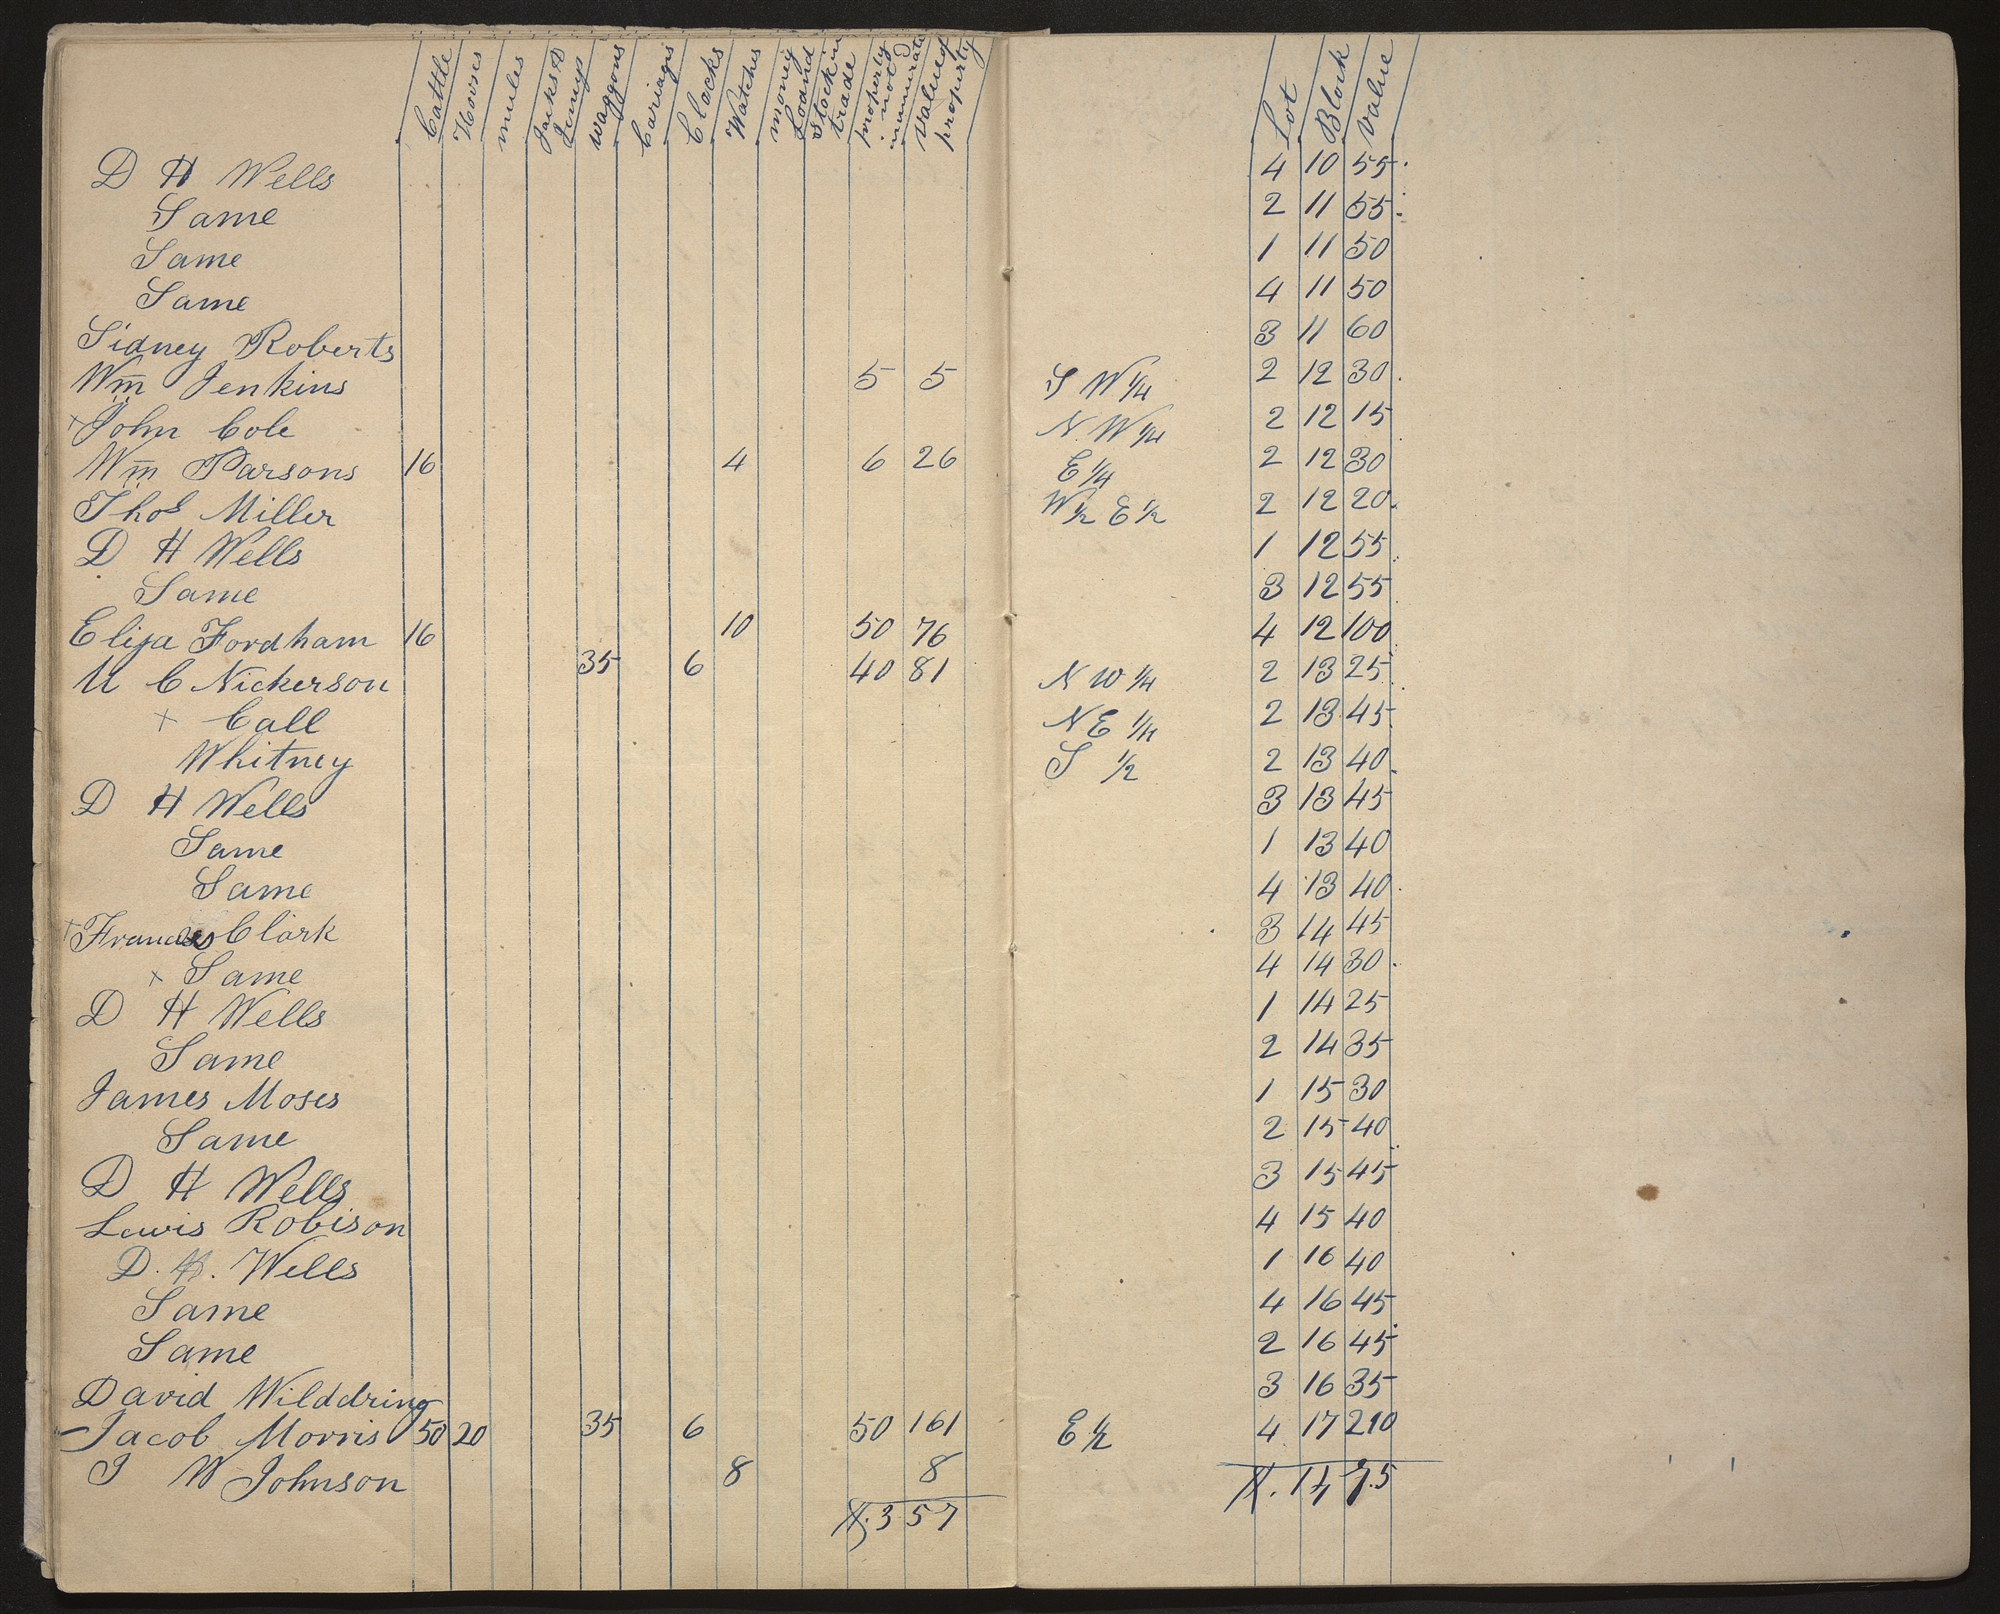 Cattle Horses mules Jacks & Jennys waggons Cariages Clocks Watches money Loand Stock in trade property not innumirated value of property Lot Block Value
D H Wells 4 10 55
Same 2 11 55
Same 1 11 50
Same 4 11 50
Sidney Roberts 3 11 60
Wm Jenkins 5 5 S W 1/4 2 12 30
+ John Cole N. W 1/4 2 12 15
Wm Parsons 16 4 6 26 E 1/4 2 12 30
Thos Miller W 1/2 E 1/2 2 12 20
D H Wells 1 12 55
Same 3 12 55
Elija Fordham 16 10 50 76 4 12 100
U C Nickerson 35 6 40 81 N W 1/4 2 13 25
+ Call N E 1/4 2 13 45
Whitney S 1/2 2 13 40
D H Wells 3 13 45
Same 1 13 40
Same 4 13 40
+ Francis Clark 3 14 45
x Same 4 14 30
D H Wells 1 14 25
Same 2 14 35
James Moses 1 15 30
Same 2 15 40
D H Wells 3 15 45
Lewis Robison 4 15 40
D. H. Wells 1 16 40
Same 4 16 45
Same 2 16 45
David Wilddring 3 16 35
Jacob Morris 50 20 35 6 50 161 E 1/2 4 17 210
J W Johnson 8 8
$. 357 $. 1475